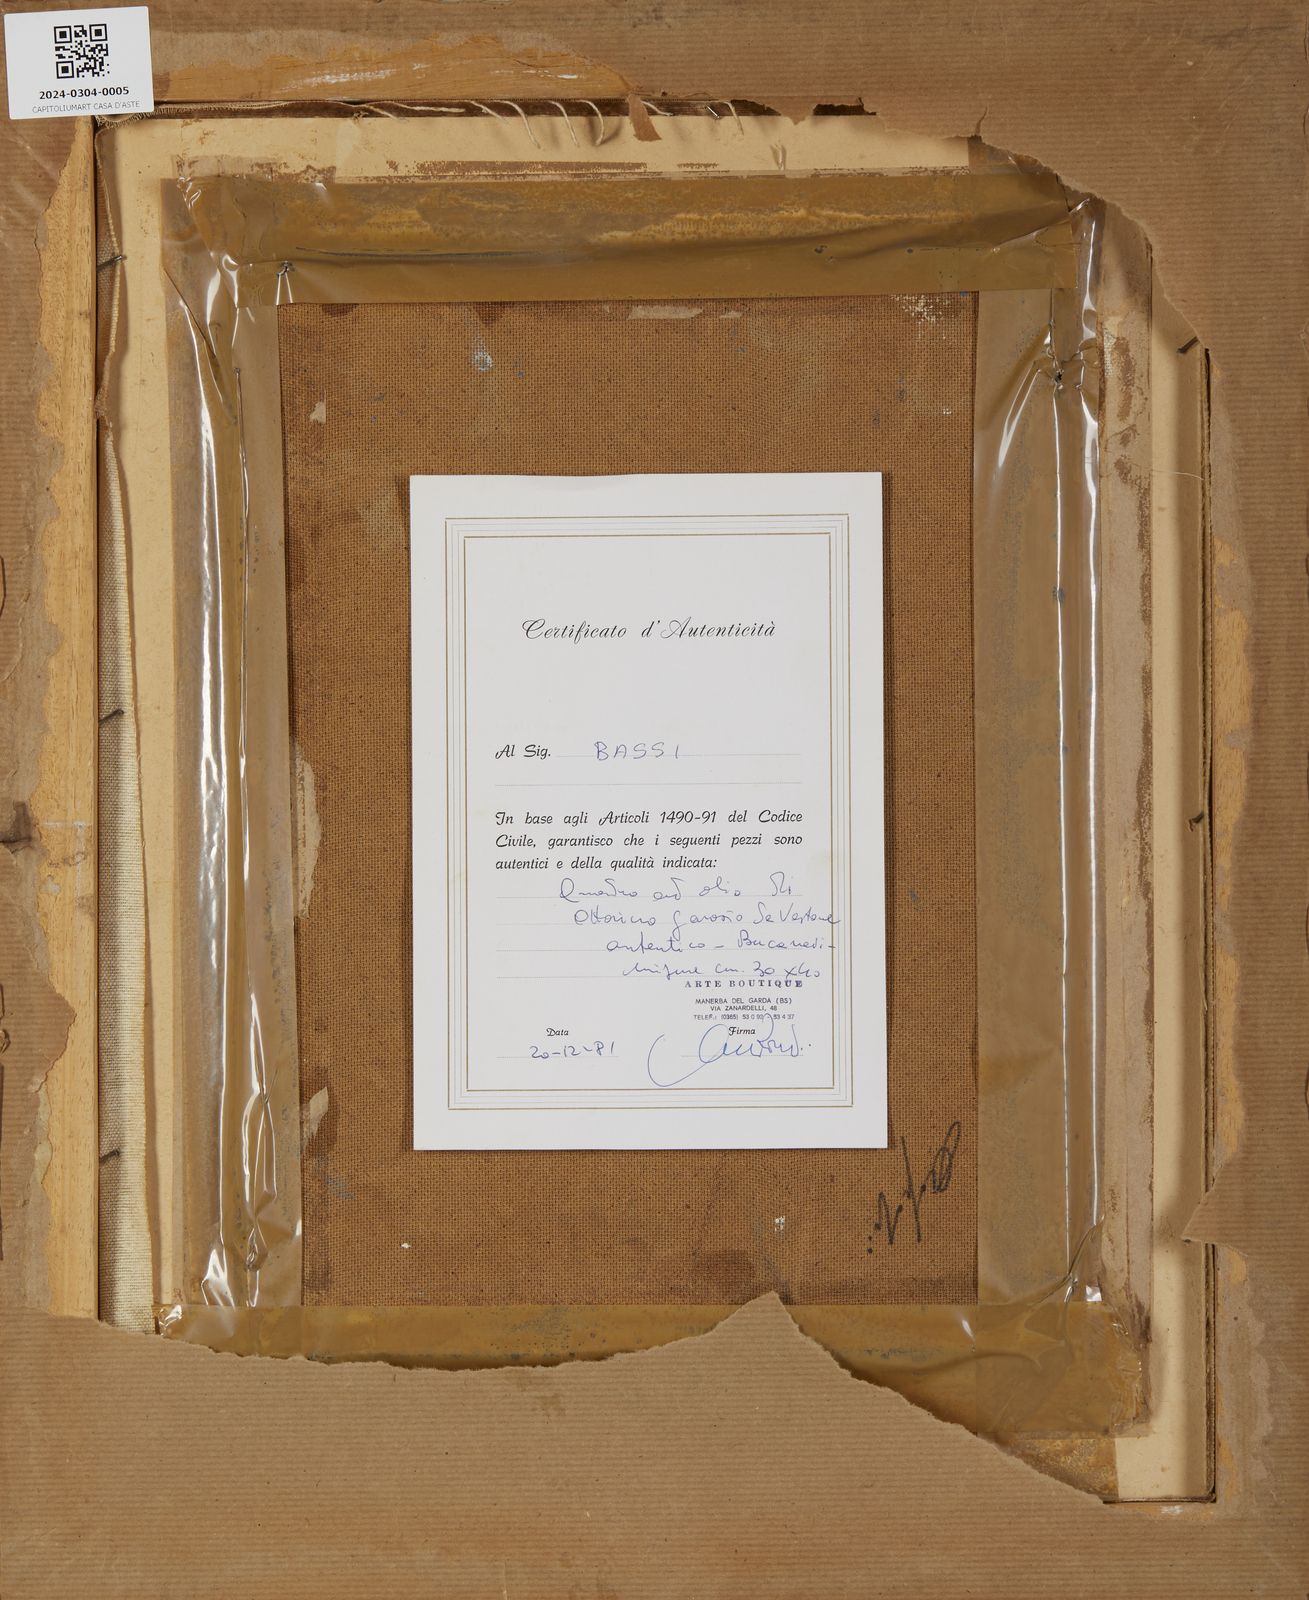 2024-0304-0005
CAPITOLIUMART CASA D'ASTE
Certificato d'Autenticità
Al Sig. BASSI
In base agli Articoli 1490-91 del Codice
Civile, garantisco che i seguenti pezzi sono
autentici e della qualità indicata:
Quadro ad olio di
Ottorino Garosio da Vestone
autentico - Bucanevi -
misure cm. 30 x 40
ARTE BOUTIQUE
MANERBA DEL GARDA (BS)
VIA ZANARDELLI, 48
TELEF.: (0365)
Data
Firma
20-12-81